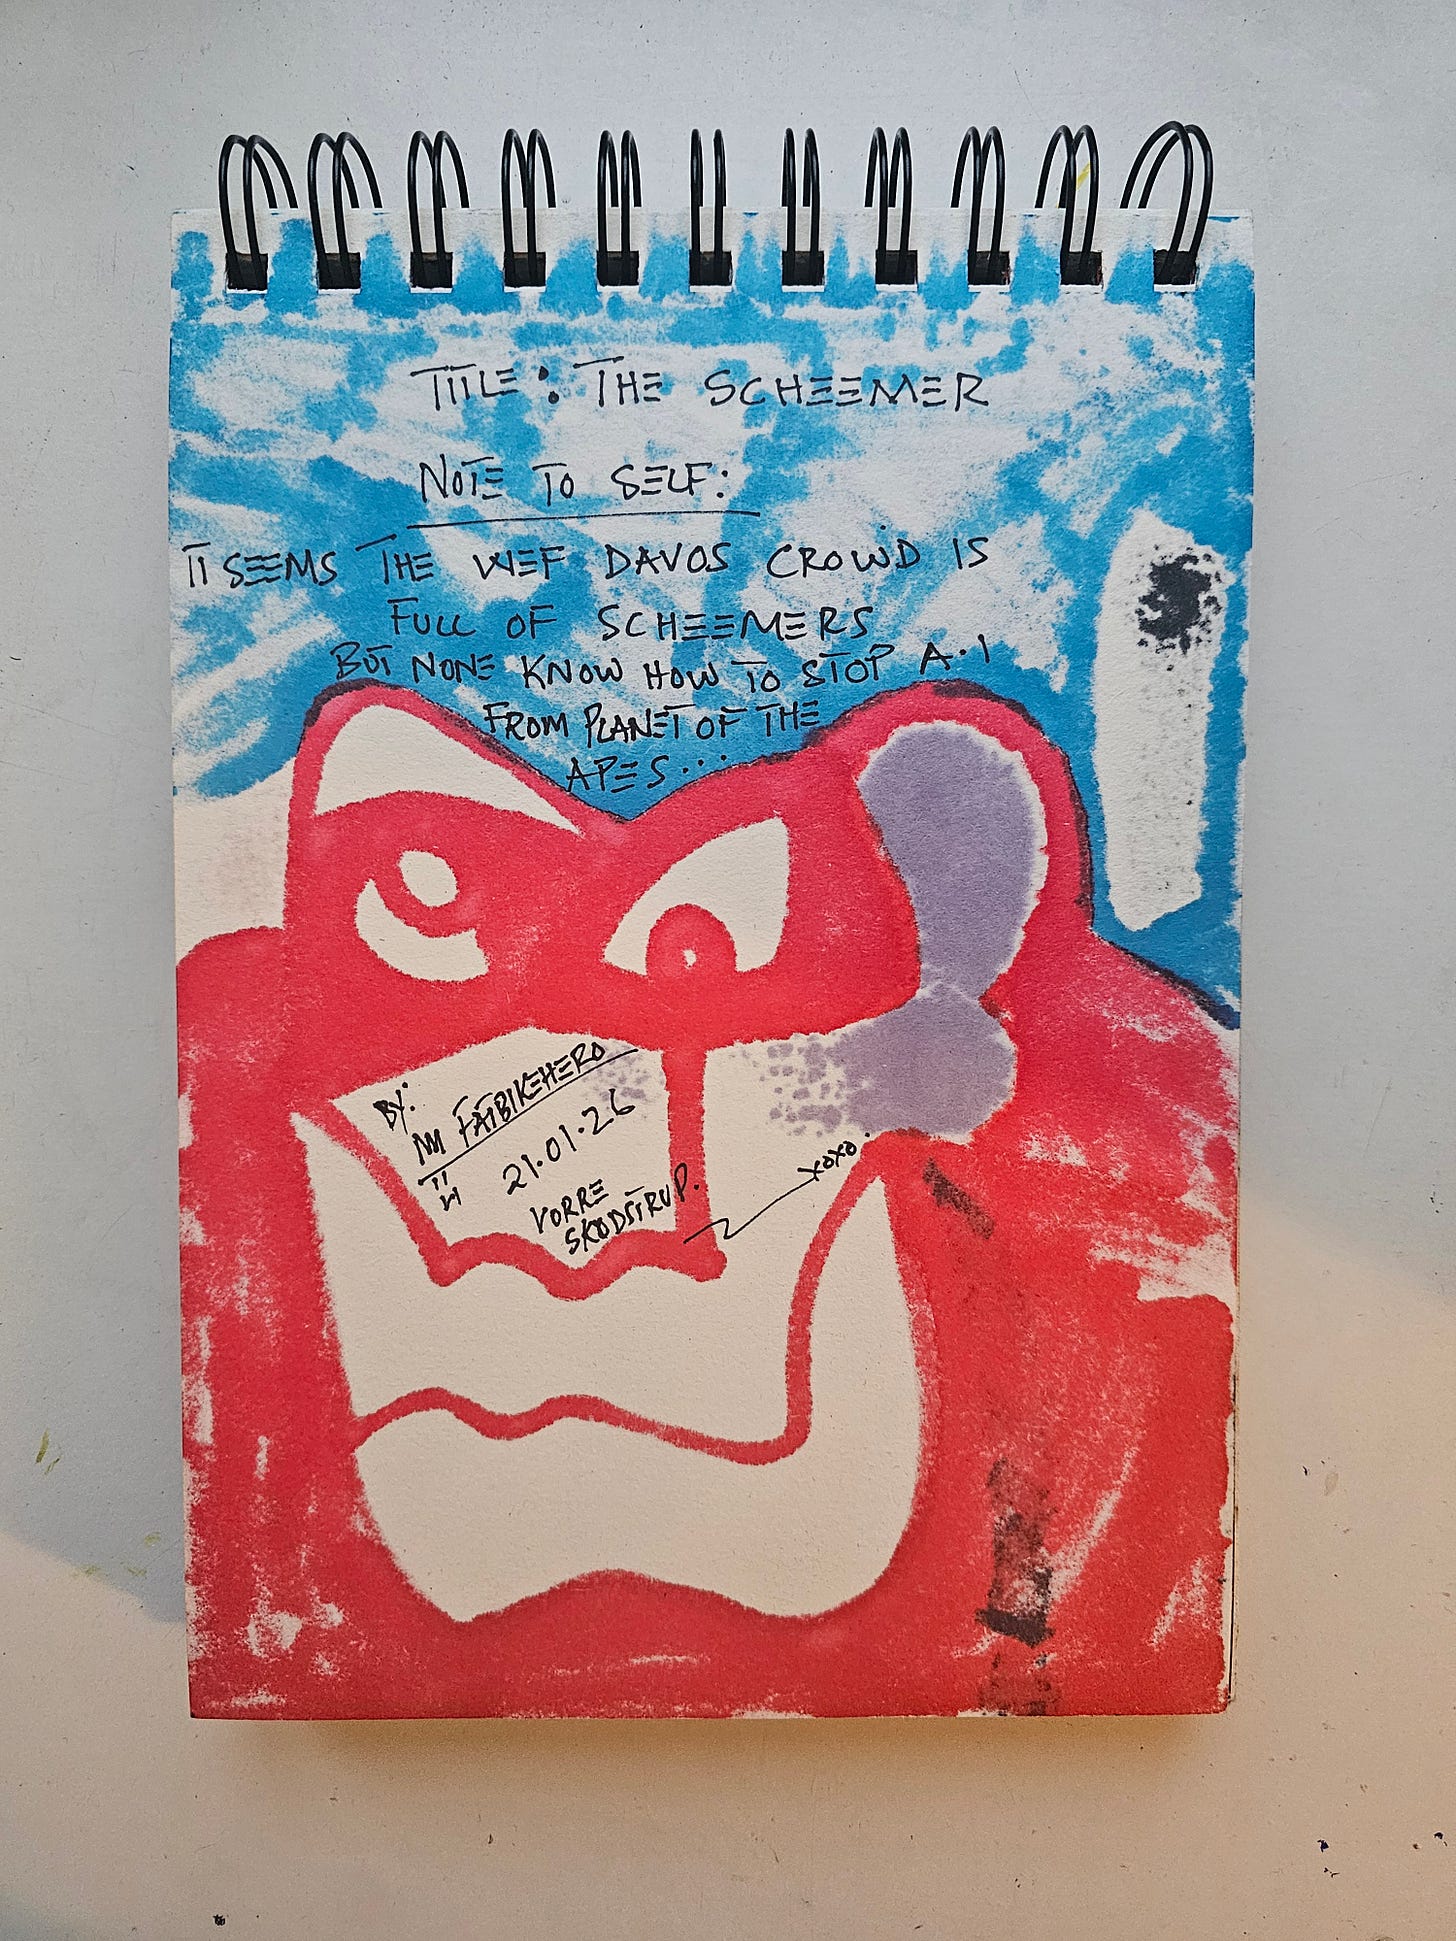 TITLE: THE SCHEEMER
NOTE TO SELF:
IT SEEMS THE WEF DAVOS CROWD IS
FULL OF SCHEEMERS
BUT NONE KNOW HOW TO STOP A.I
FROM PLANET OF THE
APES...
BY:
FATBIKEHERO
21.01.26
VORRE
SKØDSTRUP.
XOXO.